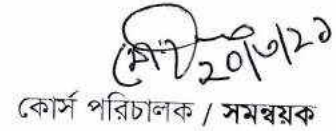 ২০/৩/২১
কোর্স পরিচালক / সমন্বয়ক